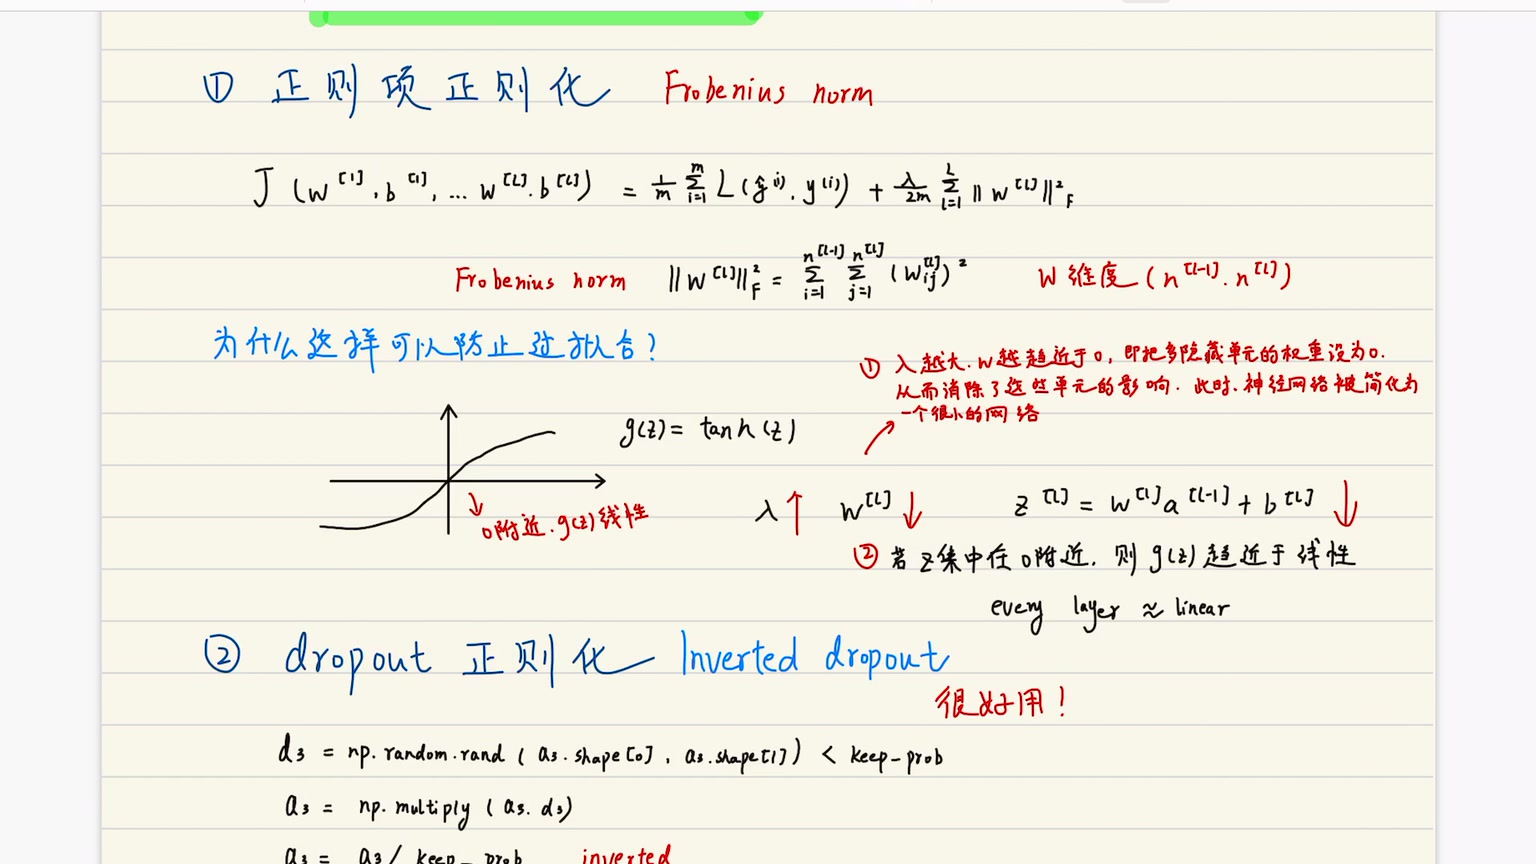 ① 正则项正则化 Frobenius norm
J (w^[1], b^[1], ... w^[L], b^[L]) = 1/m Σ_{i=1}^{m} L(ŷ^(i), y^(i)) + λ/2m Σ_{l=1}^{L} ||w^[l]||²_F
Frobenius norm ||w^[l]||²_F = Σ_{i=1}^{n^[l-1]} Σ_{j=1}^{n^[l]} (w_ij^[l])² W维度 (n^[l-1], n^[l])
为什么这样可以防止过拟合?
① λ越大, w越趋近于0, 即把多隐藏单元的权重设为0.
从而消除了这些单元的影响. 此时, 神经网络被简化为
一个很小的网络
g(z) = tanh(z)
0附近, g(z)线性
λ↑ w^[l]↓ z^[l] = w^[l]a^[l-1] + b^[l] ↓
② 若z集中在0附近, 则g(z)趋近于线性
every layer ≈ linear
② dropout 正则化 Inverted dropout
很好用!
d3 = np.random.rand (a3.shape[0], a3.shape[1]) < keep-prob
a3 = np.multiply (a3, d3)
a3 = a3 / keep-prob inverted